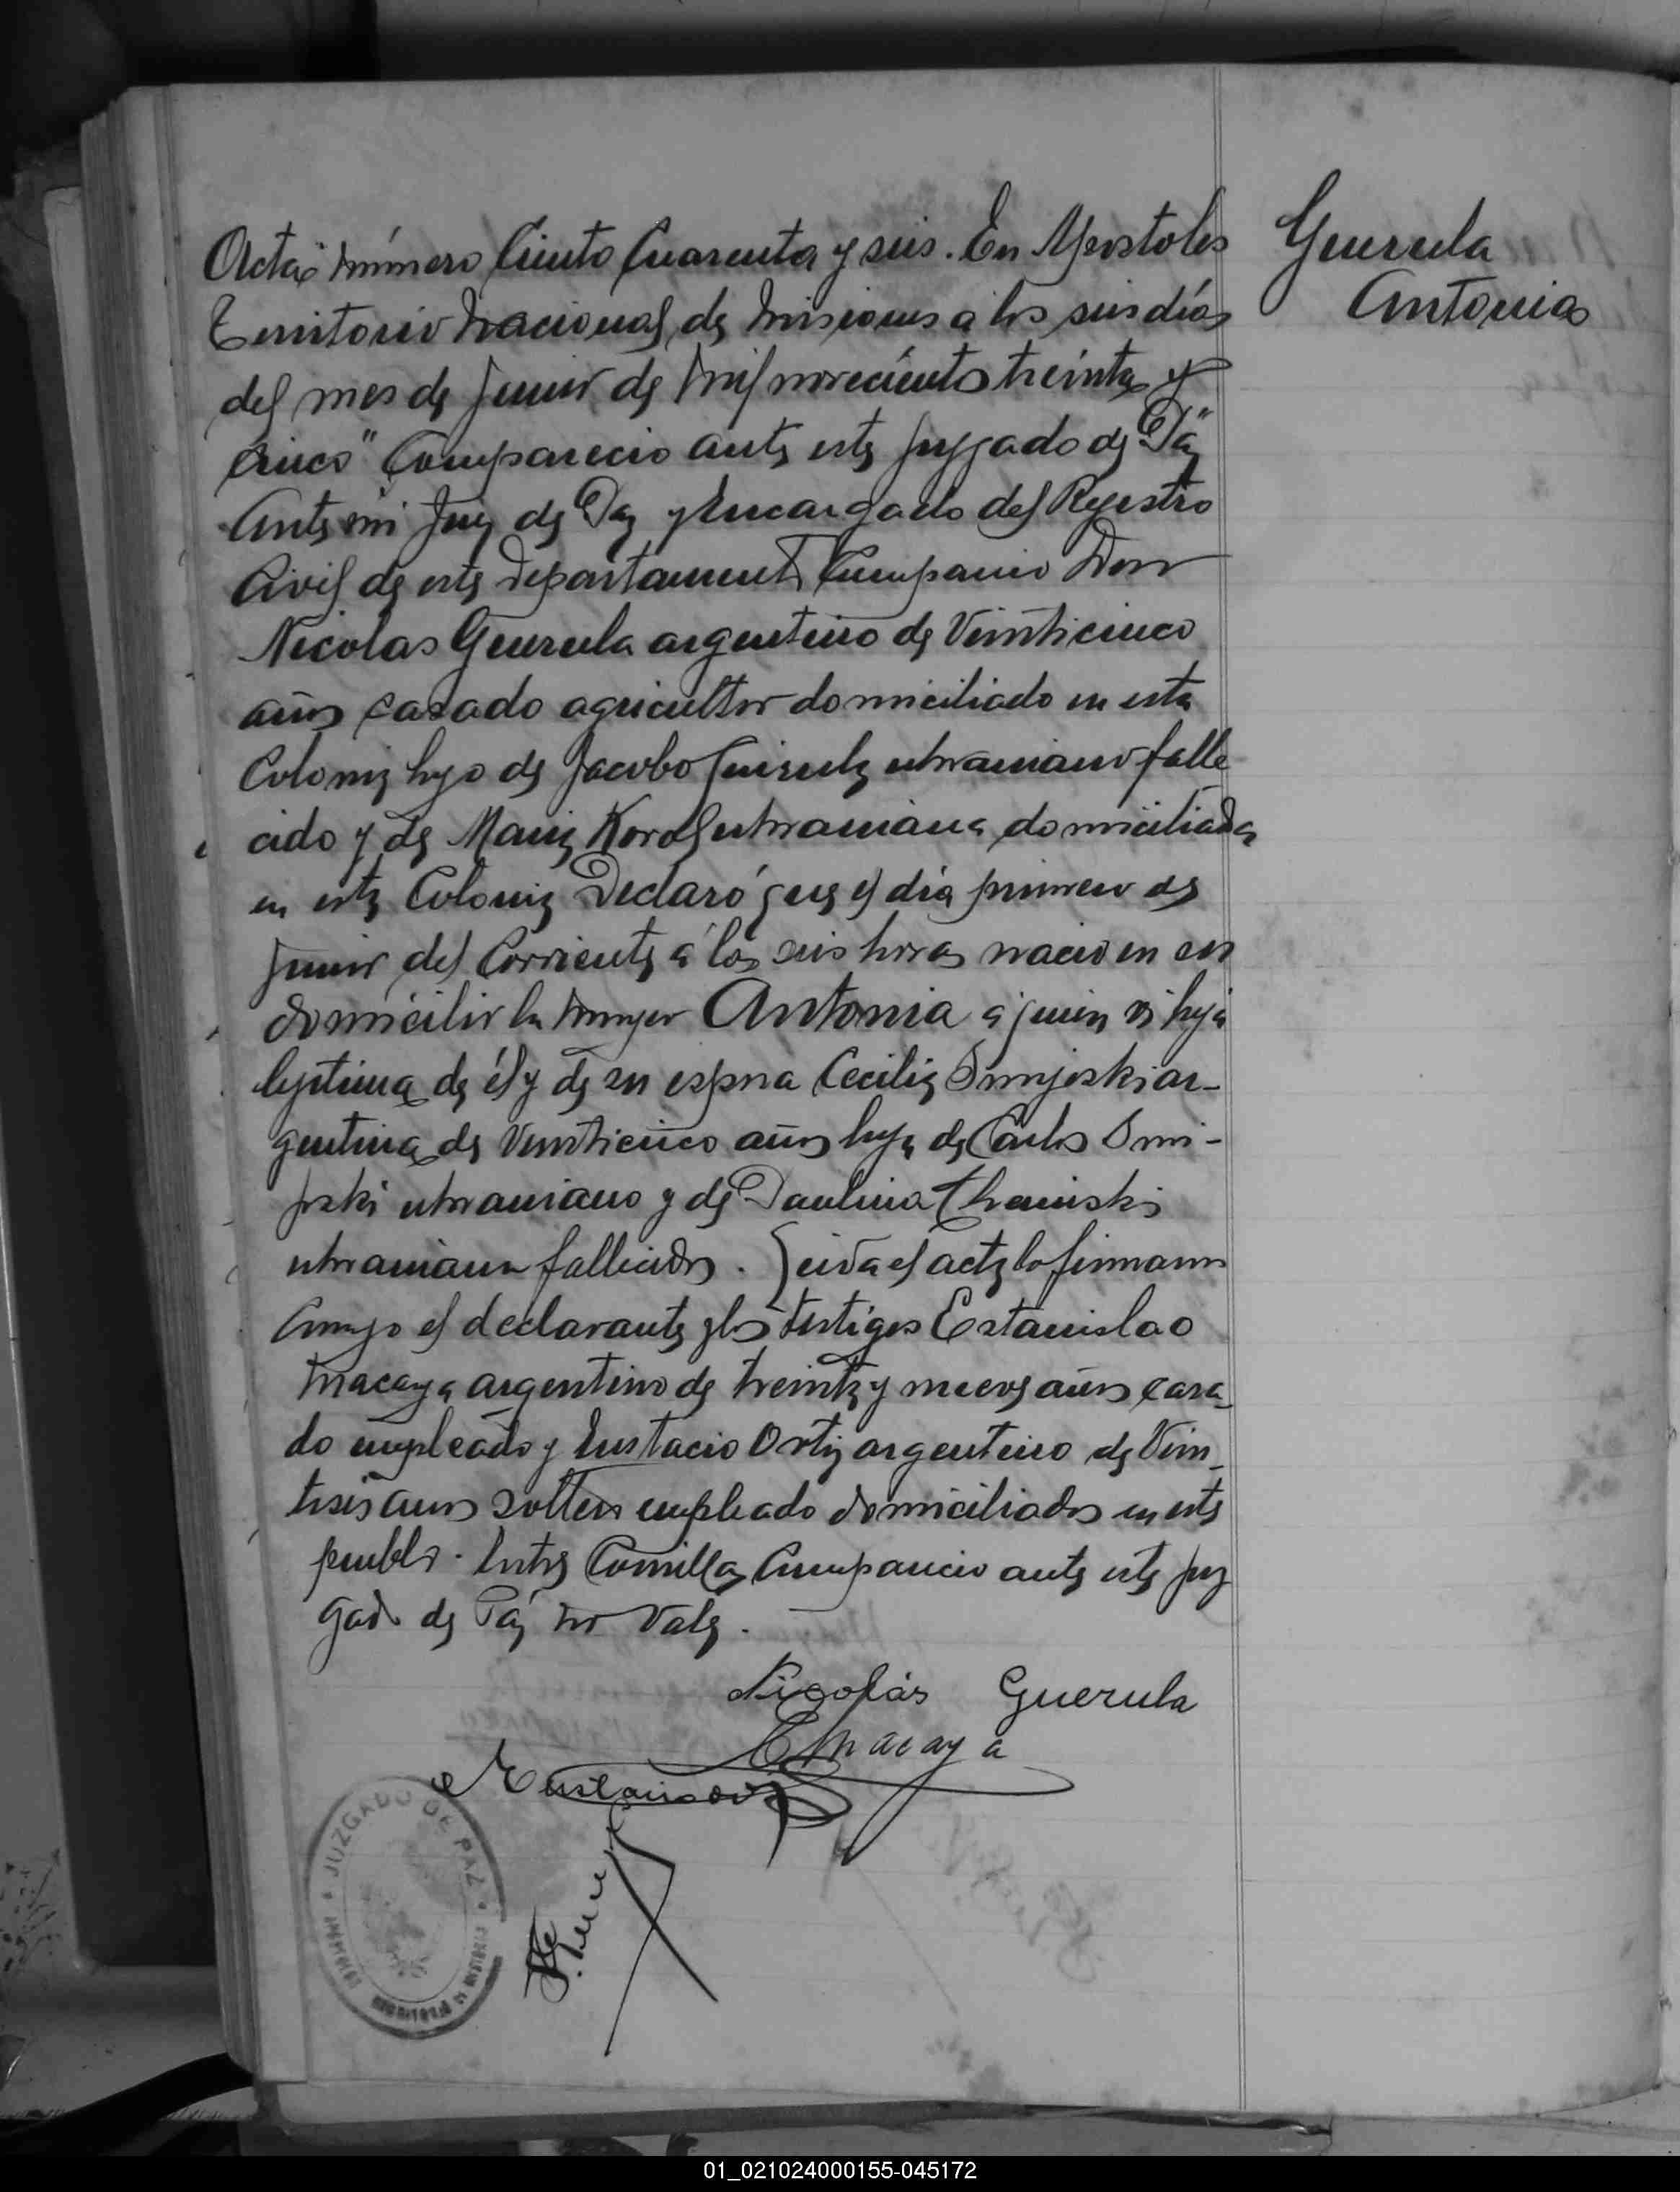 Acta número Ciento Cuarenta y seis. En Apostoles
Guerula
Antonia
Territorio Nacional de Misiones a los seis días
del mes de Junio de mil novecientos treinta y
cinco "Comparecio ante este Juzgado de Pa"
Ante mi Juez de Paz y Encargado del Registro
Civil de este departamento Comparecio Don
Nicolas Guerula argentino de Veinticinco
años casado agricultor domiciliado en esta
Colonia hijo de Jacobo Guerula ukraniano falle
cido y de Maria Korol ukraniana domiciliada
en esta Colonia Declaró que el día primero de
Junio del Corriente á las seis horas nacio en su
domicilio la mujer Antonia a quien es hija
legitima de él y de su esposa Cecilia ar-
gentina de Veinticinco años hija de Carlos
ukraniano y de Paulina
ukraniana fallecidos. Leida el acta la firmaron
Conmigo el declarante y los testigos Estanislao
Macaya argentino de treinta y nueve años casa-
do empleado y Eustacio Ortiz argentino de Vein-
tiseis años soltero empleado domiciliados en este
pueblo. Entre Comillas Comparecio ante este Juz
gado de Pá no Vale.
Nicolás Guerula
E Macaya
JUZGADO DE PAZ
01_021024000155-045172